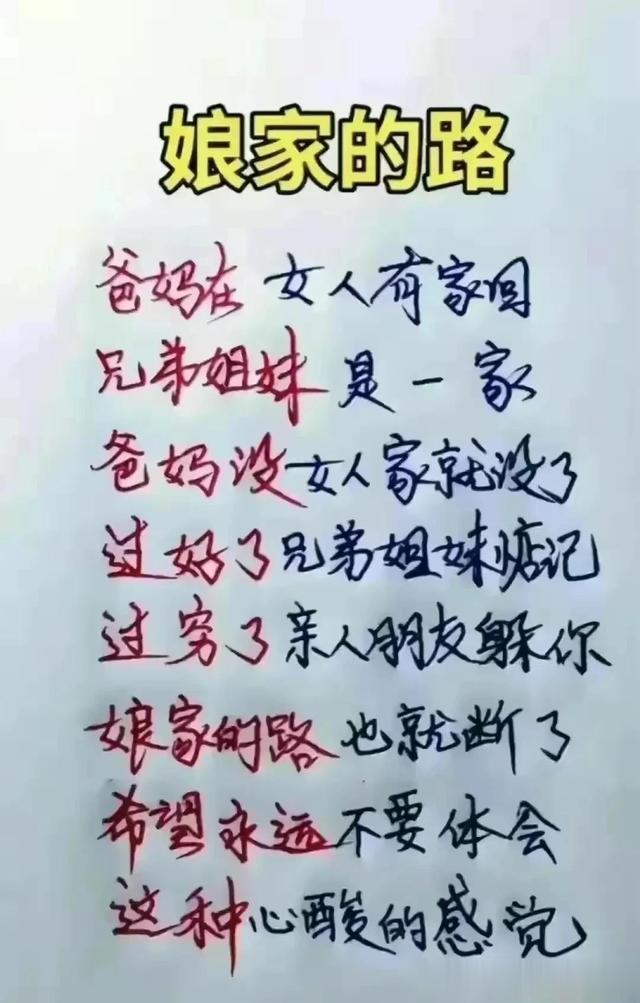 娘家的路
爸妈在 女人有家回
兄弟姐妹 是一家
爸妈没女人家就没了
过好了兄弟姐妹惦记
过穷了亲人朋友躲你
娘家的路也就断了
希望永远不要体会
这种心酸的感觉